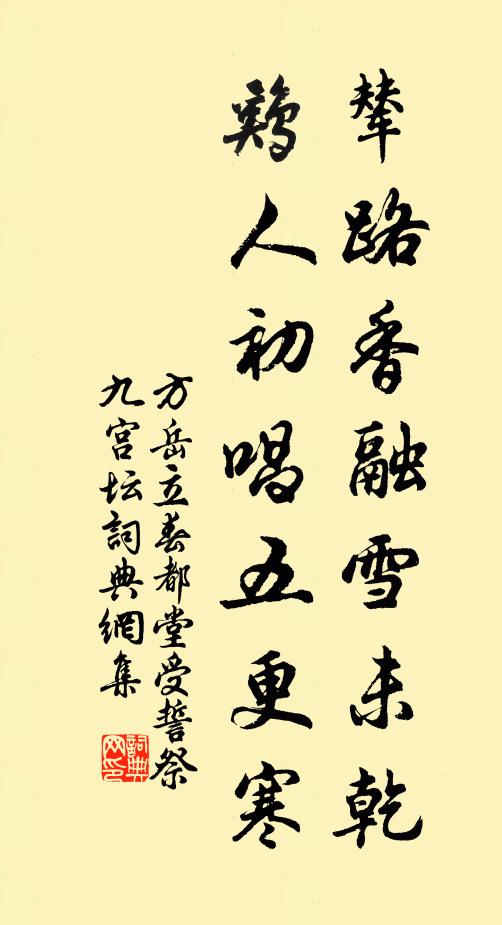 輦路香融雪未乾
鷄人初唱五更寒
方岳立春都堂受誓祭
九宫坛詞典網集
詞典
网印